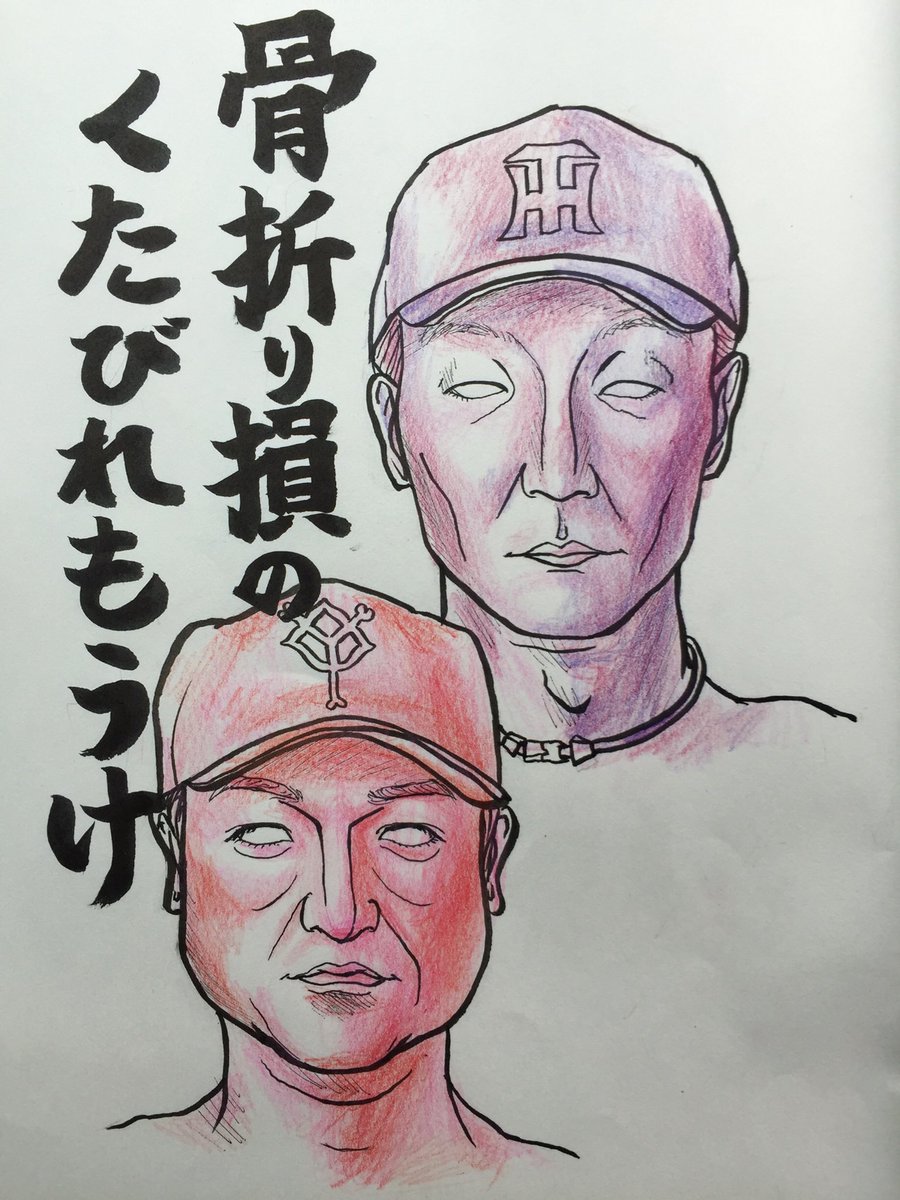 骨折り損の
くたびれもうけ
HT
YG